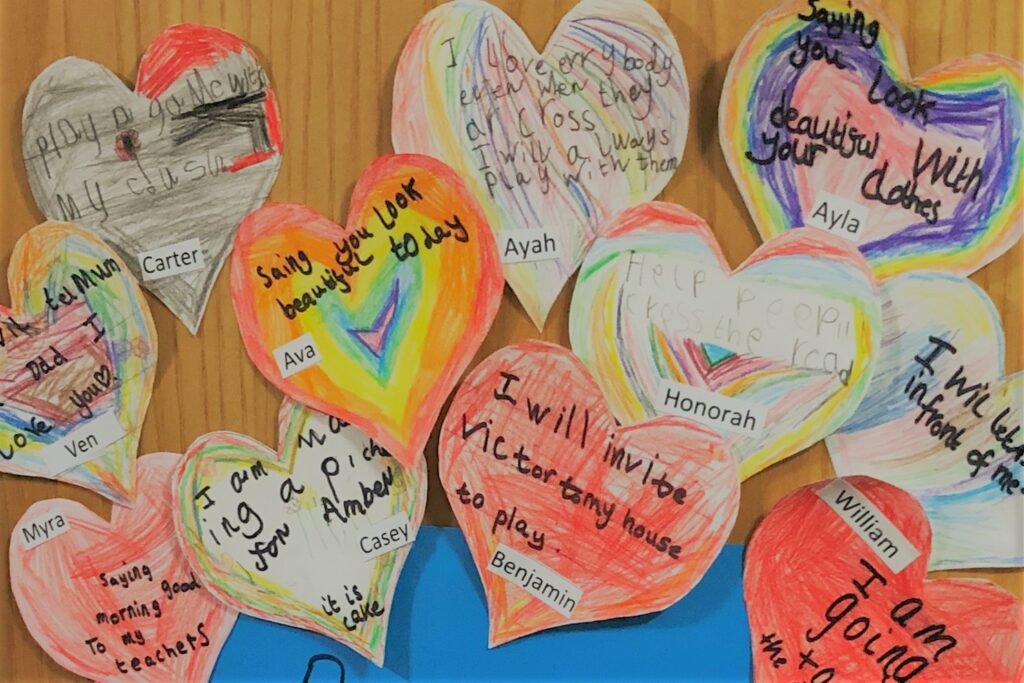 play a game with
my cousin
Carter
I love errybody
even when they
ar cross
I will a lways
play with them
Ayah
Saying
you Look
beautiful With
your clothes
Ayla
tel Mum
Dad I
Love you
Ven
Saing you Look
beautiful today
Ava
Help peopl
cross the road
Honorah
I wil let
infront of me
Myra
Saying good
morning
To my
teachers
I am
ing a pich
for Amber
it is
cake
Casey
I will invite
Victor to my house
to play.
Benjamin
William
I am
going
to
the